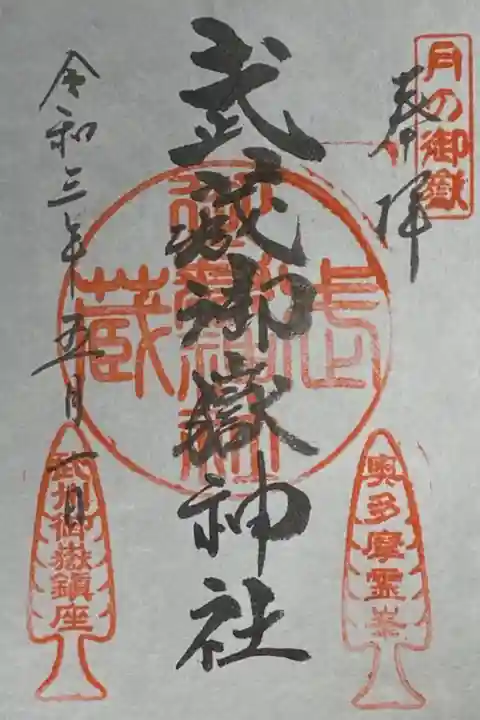 月の御嶽
奉拝
武蔵御嶽神社
奥多摩霊峯
武州御嶽鎮座
令和三年五月一日